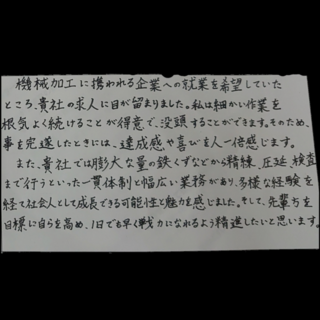 機械加工に携われる企業への就業を希望していた
ところ、貴社の求人に目が留まりました。私は細かい作業を
根気よく続けることが得意で、没頭することができます。そのため、
事を完遂したときには、達成感や喜びを人一倍感じます。
また、貴社では膨大な量の鉄くずなどから精練、圧延、検査
まで行うといった一貫体制と幅広い業務があり、多様な経験を
経て社会人として成長できる可能性と魅力を感じました。そして、先輩方を
目標に自らを高め、1日でも早く戦力になれるよう精進したいと思います。